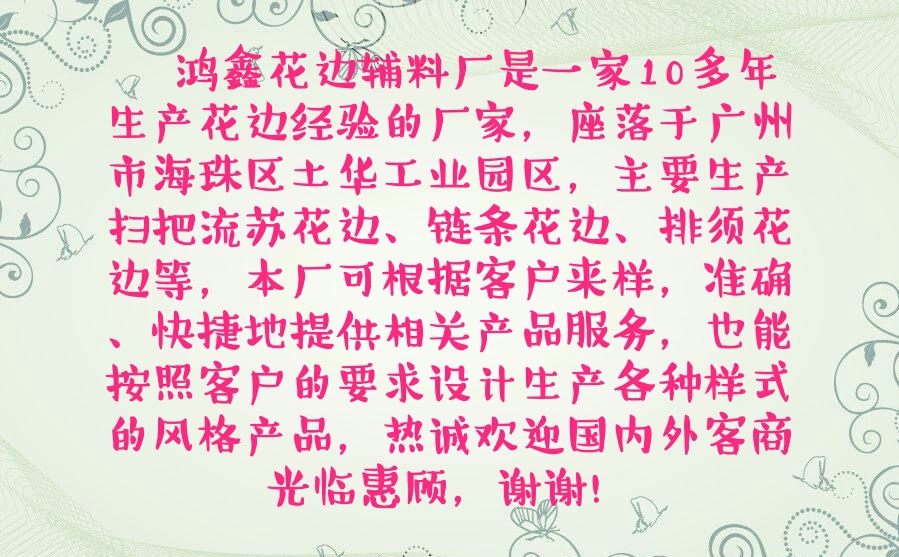 鸿鑫花边辅料厂是一家10多年
生产花边经验的厂家，座落于广州
市海珠区土华工业园区，主要生产
扫把流苏花边、链条花边、排须花
边等，本厂可根据客户来样，准确
、快捷地提供相关产品服务，也能
按照客户的要求设计生产各种样式
的风格产品，热诚欢迎国内外客商
光临惠顾，谢谢!